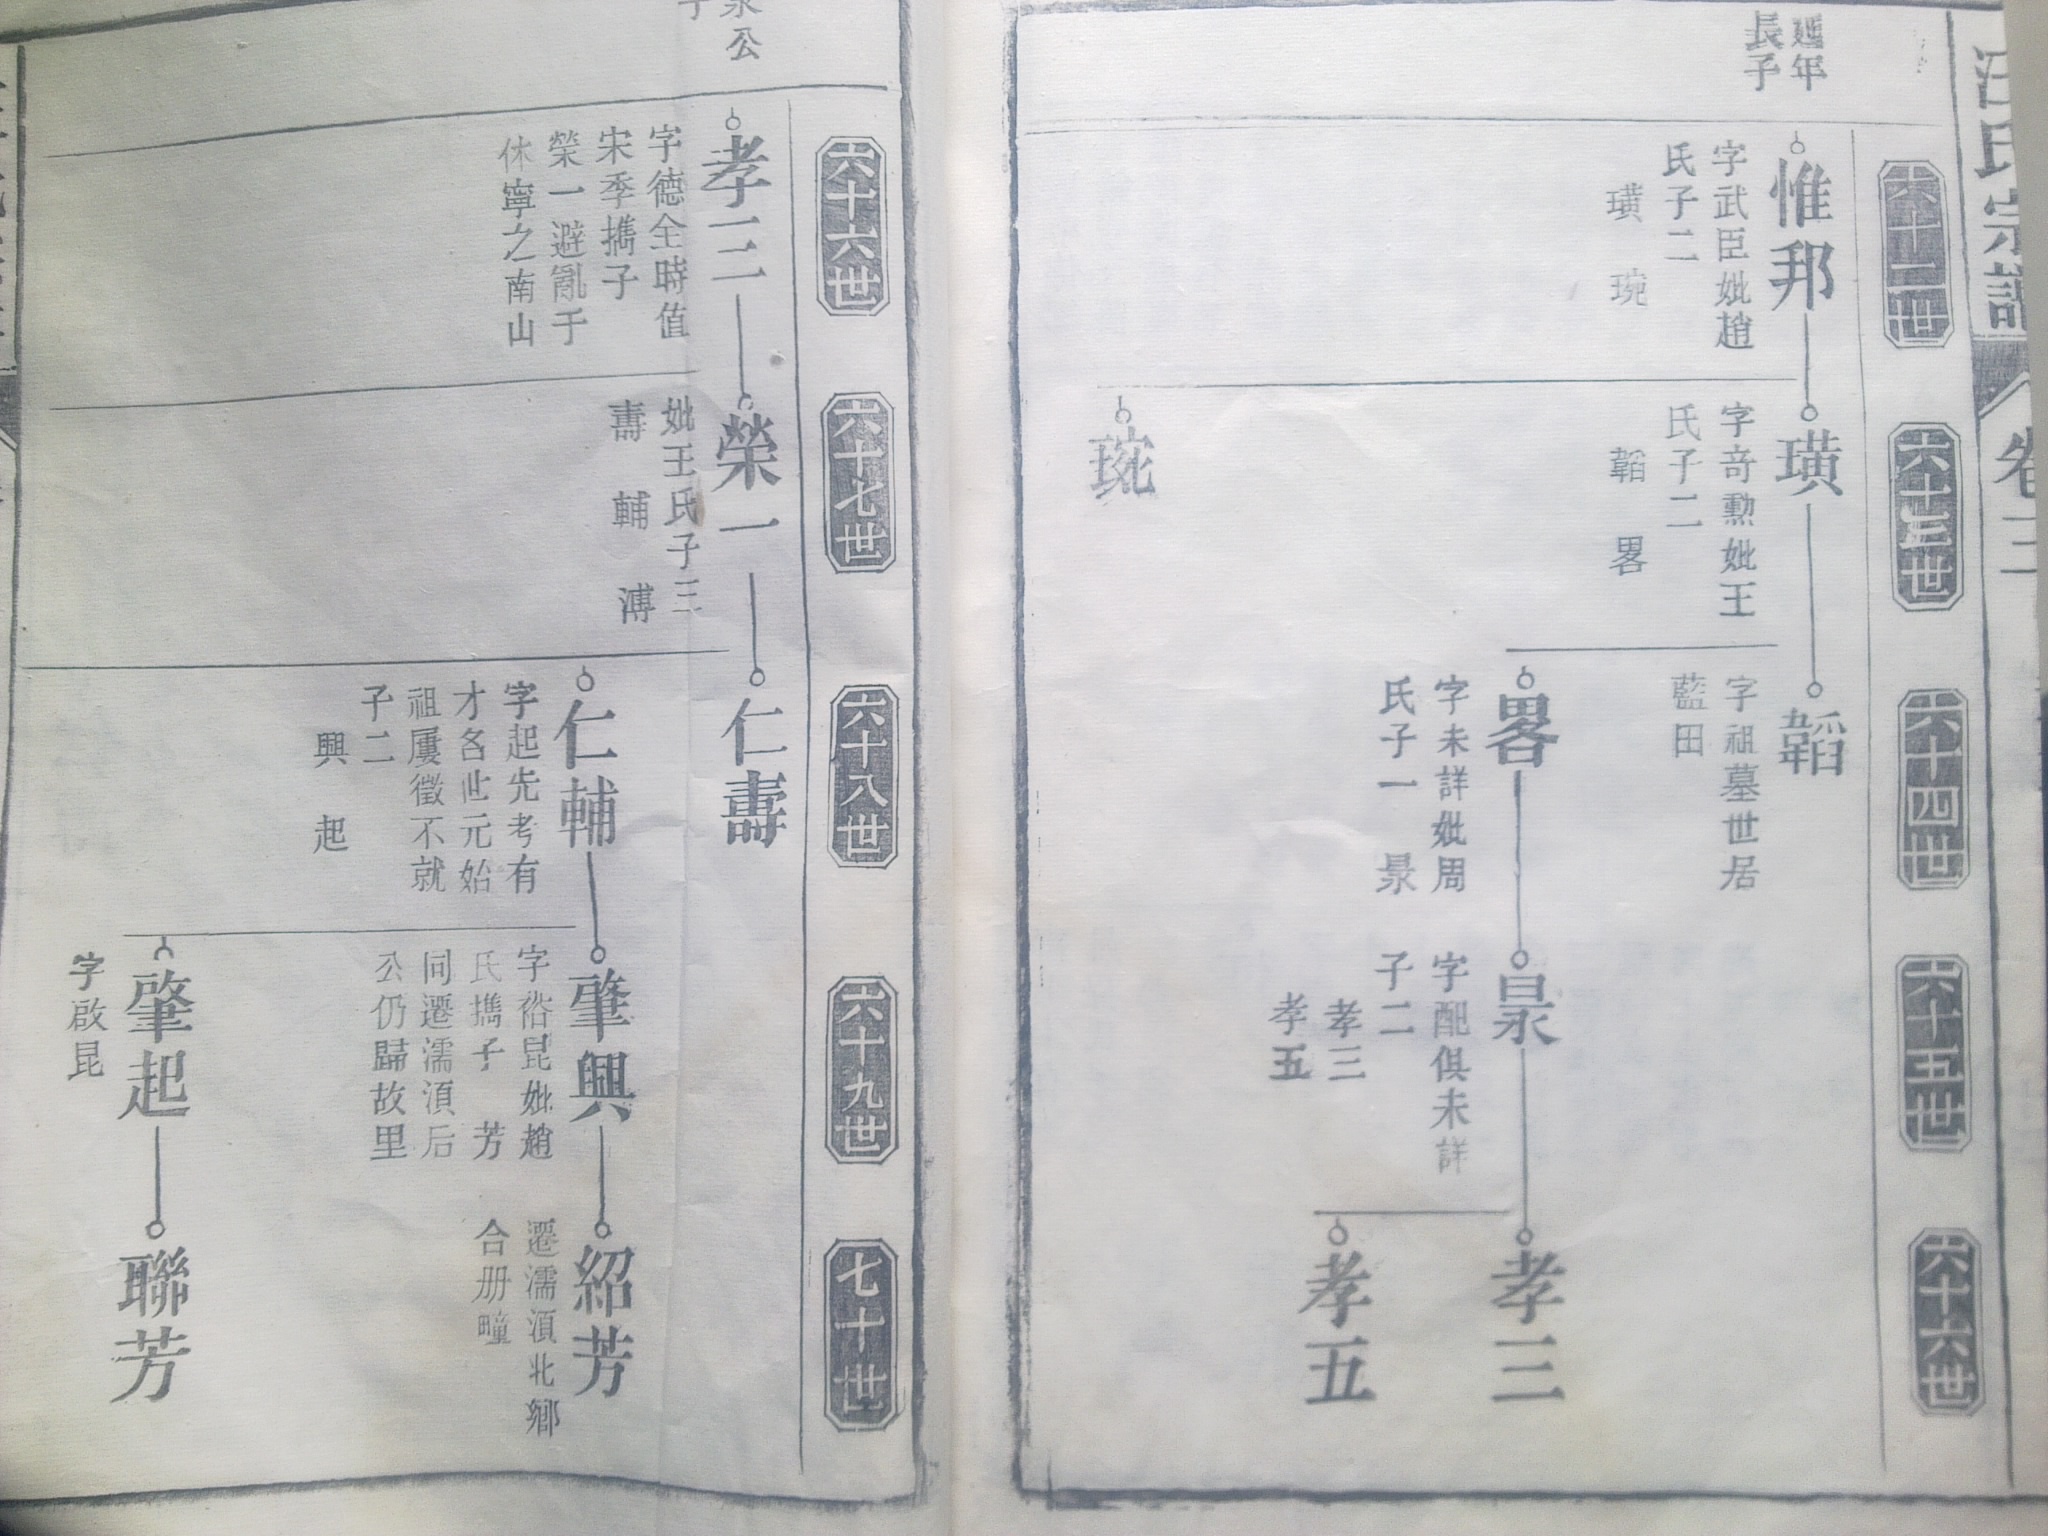 汪氏宗譜
卷三
六十二世
六十三世
六十四世
六十五世
六十六世
廻年
長子
惟邦
字武臣妣趙
氏子二
璜 琬
璜
字奇勲妣王
氏子二
韜 畧
琬
韜
字祖墓世居
藍田
畧
字未詳妣周
氏子一 㬌
㬌
字配俱未詳
子二
孝三
孝五
孝三
孝五
六十六世
六十七世
六十八世
六十九世
七十世
公
子
孝三
字德全時值
宋季擕子
榮一避亂于
休寧之南山
榮一
妣王氏子三
壽 輔 溥
仁壽
仁輔
字起先考有
才名此元始
祖屢徵不就
子二
興 起
肇興
字裕昆妣趙
氏擕子 芳
同遷濡湏后
公仍歸故里
肇起
字啟昆
紹芳
遷濡湏北鄉
合册疃
聯芳